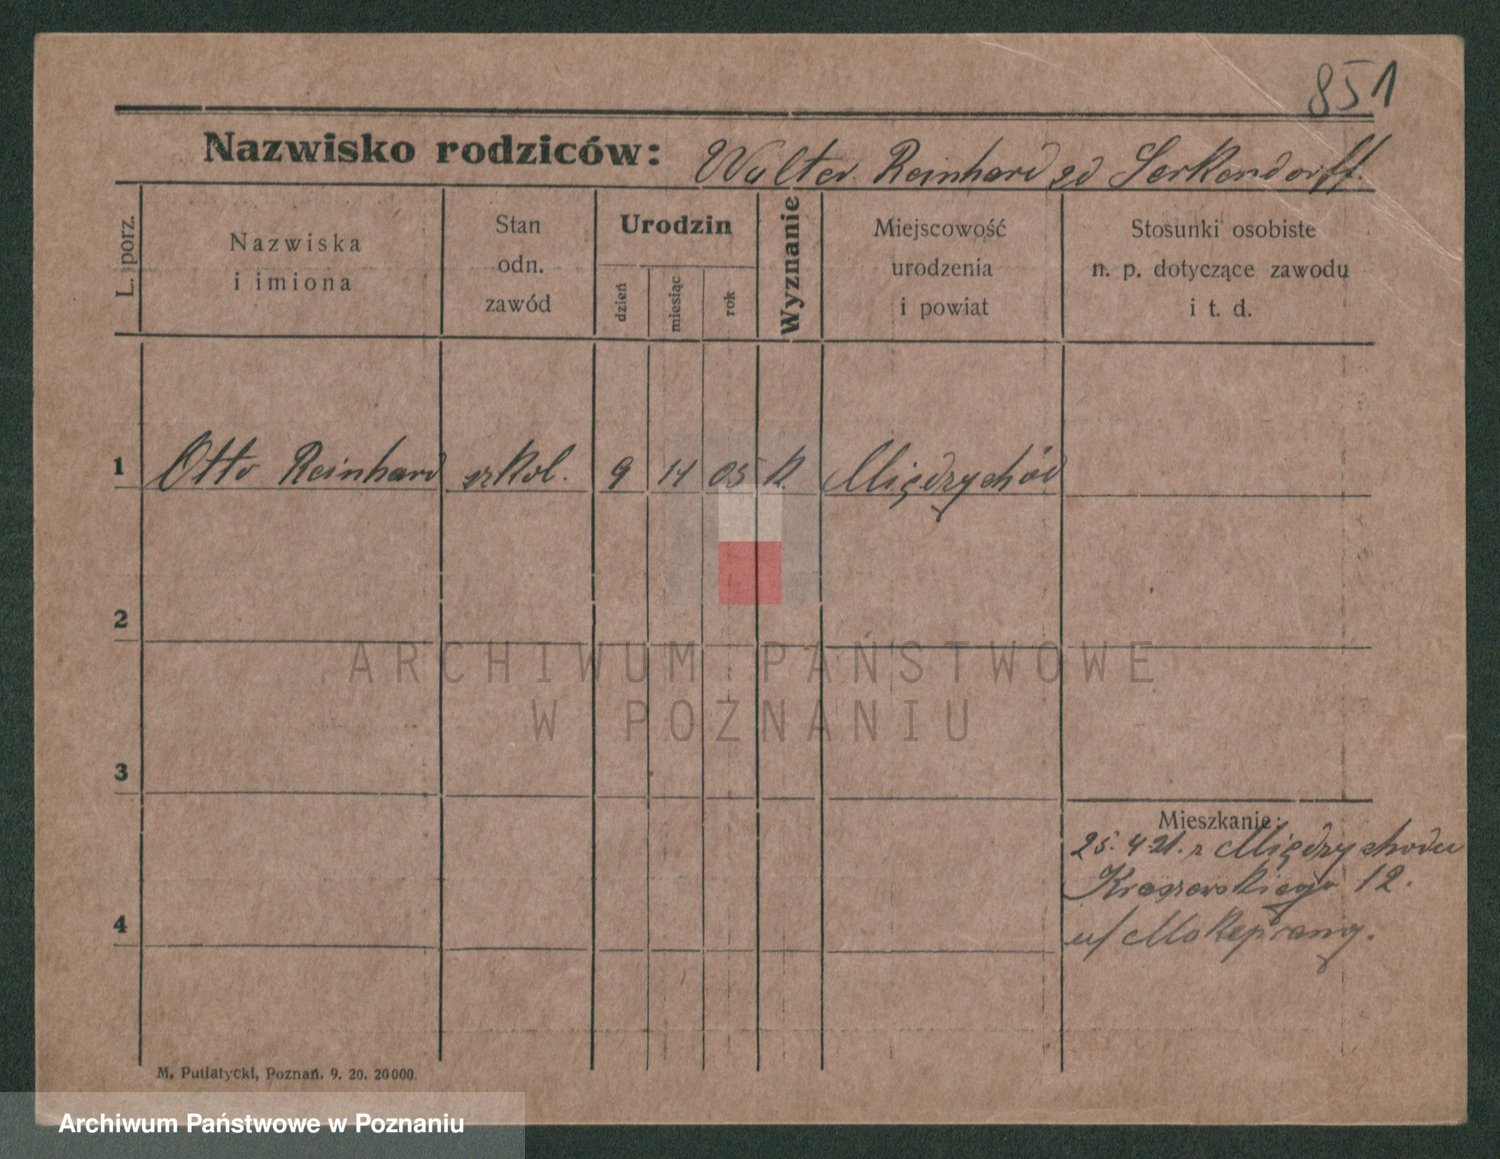 851
Nazwisko rodziców: Walter Reinhard zd Serkendorff.
L. porz.
Nazwiska
i imiona
Stan
odn.
zawód
Urodzin
dzień
miesiąc
rok
Wyznanie
Miejscowość
urodzenia
i powiat
Stosunki osobiste
n. p. dotyczące zawodu
i t. d.
1 Otto Reinhard szkol. 9 11 05 k. Międzychód
2
ARCHIWUM PAŃSTWOWE
W POZNANIU
3
Mieszkanie:
25. 4 21. z Międzychodu
Kraszewskiego 12.
4
M. Putiatycki, Poznań. 9. 20. 20000.
Archiwum Państwowe w Poznaniu